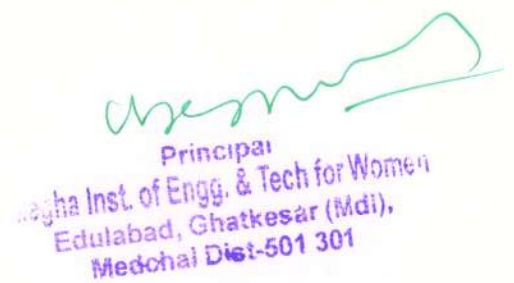 Principal
Inst. of Engg. & Tech for Women
Edulabad, Ghatkesar (Mdl),
Medchal Dist-501 301